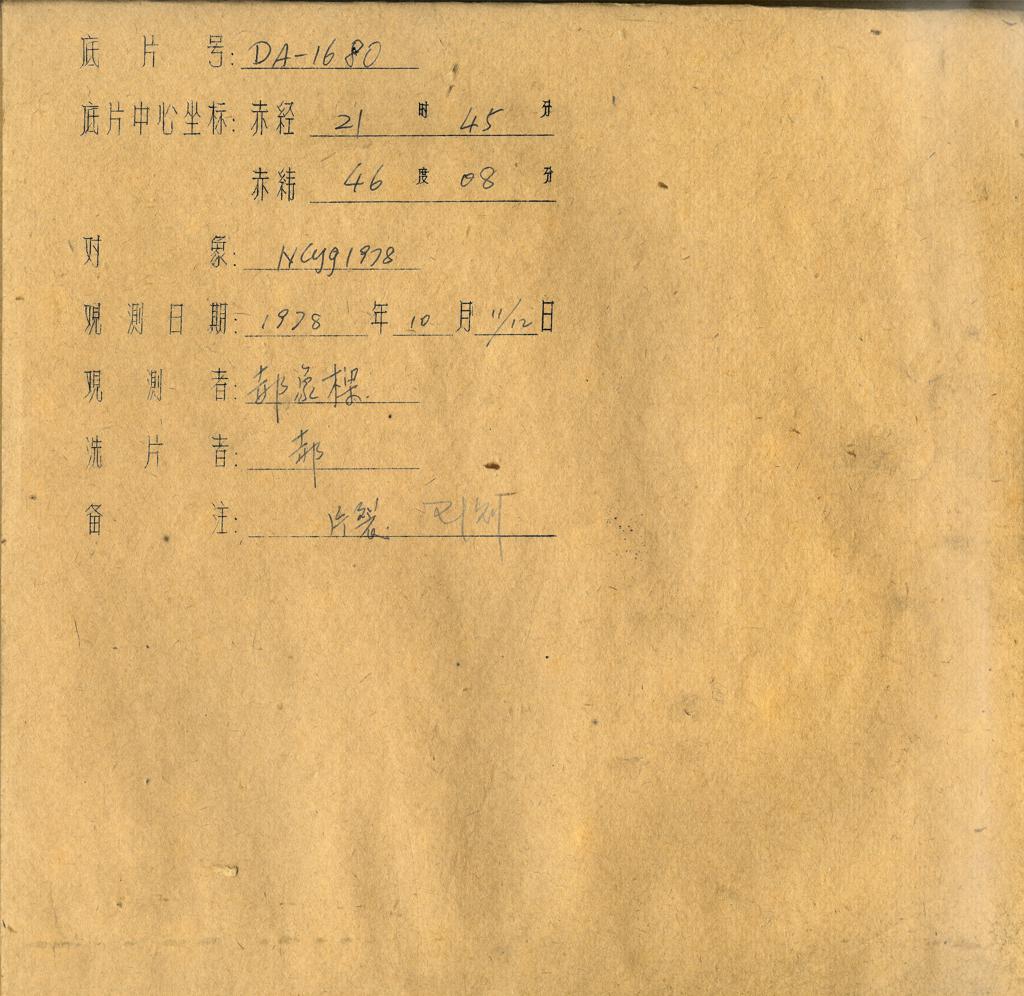 底片号: DA-1680
底片中心坐标: 赤经 21 时 45 分
赤纬 46 度 08 分
对象: NCyg1978
观测日期: 1978 年 10 月 11/12 日
观测者: 郝象樑
洗片者: 郝
备注: 片裂.